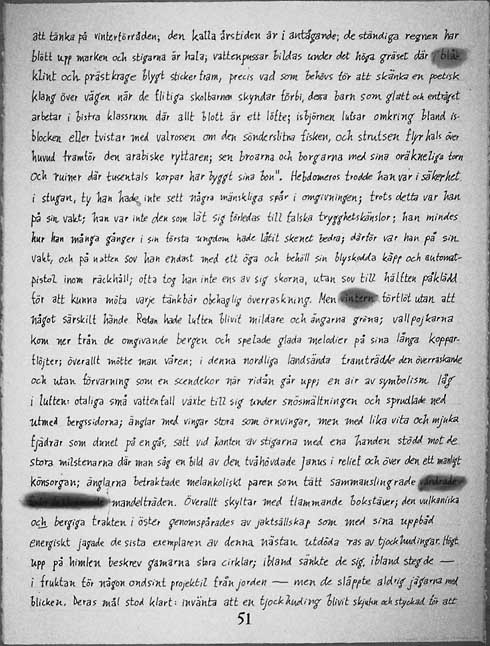 att tänka på vinterförråden; den kalla årstiden är i antågande; de ständiga regnen har
blött upp marken och stigarna är hala; vattenpussar bildas under det höga gräset där blå-
klint och prästkrage blygt sticker fram, precis vad som behövs för att skänka en poetisk
klang över vägen när de flitiga skolbarnen skyndar förbi, dessa barn som glatt och entråget
arbetar i bistra klassrum där allt blott är ett löfte; isbjörnen lufsar omkring bland is-
blocken eller tvistar med valrossen om den sönderslitna fisken, och strutsen flyr hals över
huvud framför den arabiske ryttaren; sen broarna och borgarna med sina oräkneliga torn
och ruiner där tusentals korpar har byggt sina bon". Hebdomeros trodde han var i säkerhet
i stugan, ty han hade inte sett några mänskliga spår i omgivningen; trots detta var han
på sin vakt; han var inte den som lät sig förledas till falska trygghetskänslor; han mindes
hur han många gånger i sin första ungdom hade låtit skenet bedra; därför var han på sin
vakt, och på natten sov han endast med ett öga och behöll sin blyskodda käpp och automat-
pistol inom räckhåll; ofta tog han inte ens av sig skorna, utan sov till hälften påklädd
för att kunna möta varje tänkbar obehaglig överraskning. Men vintern förflöt utan att
något särskilt hände. Redan hade luften blivit mildare och ängarna gröna; vallpojkarna
kom ner från de omgivande bergen och spelade glada melodier på sina långa koppar-
flöjter; överallt mötte man våren; i denna nordliga landsända framträdde den överraskande
och utan förvarning som en scendekor när ridån går upp; en air av symbolism låg
i luften: otaliga små vattenfall växte till sig under snösmältningen och sprudlade ned
utmed bergssidorna; änglar med vingar stora som örnvingar, men med lika vita och mjuka
fjädrar som dunet på en gås, satt vid kanten av stigarna med ena handen stödd mot de
stora milstenarna där man såg en bild av den tvåhövdade Janus i relief och över den ett manligt
könsorgan; änglarna betraktade melankoliskt paren som tätt sammanslingrade vandrade
mandelträden. Överallt skyltar med flammande bokstäver; den vulkaniska
och bergiga trakten i öster genomspårades av jaktsällskap som med sina uppbåd
energiskt jagade de sista exemplaren av denna nästan utdöda ras av tjockhudingar. Högt
upp på himlen beskrev gamarna stora cirklar; ibland sänkte de sig, ibland steg de —
i fruktan för någon ondsint projektil från jorden — men de släppte aldrig jägarna med
blicken. Deras mål stod klart: invänta att en tjockhuding blivit skjuten och styckad för att
51